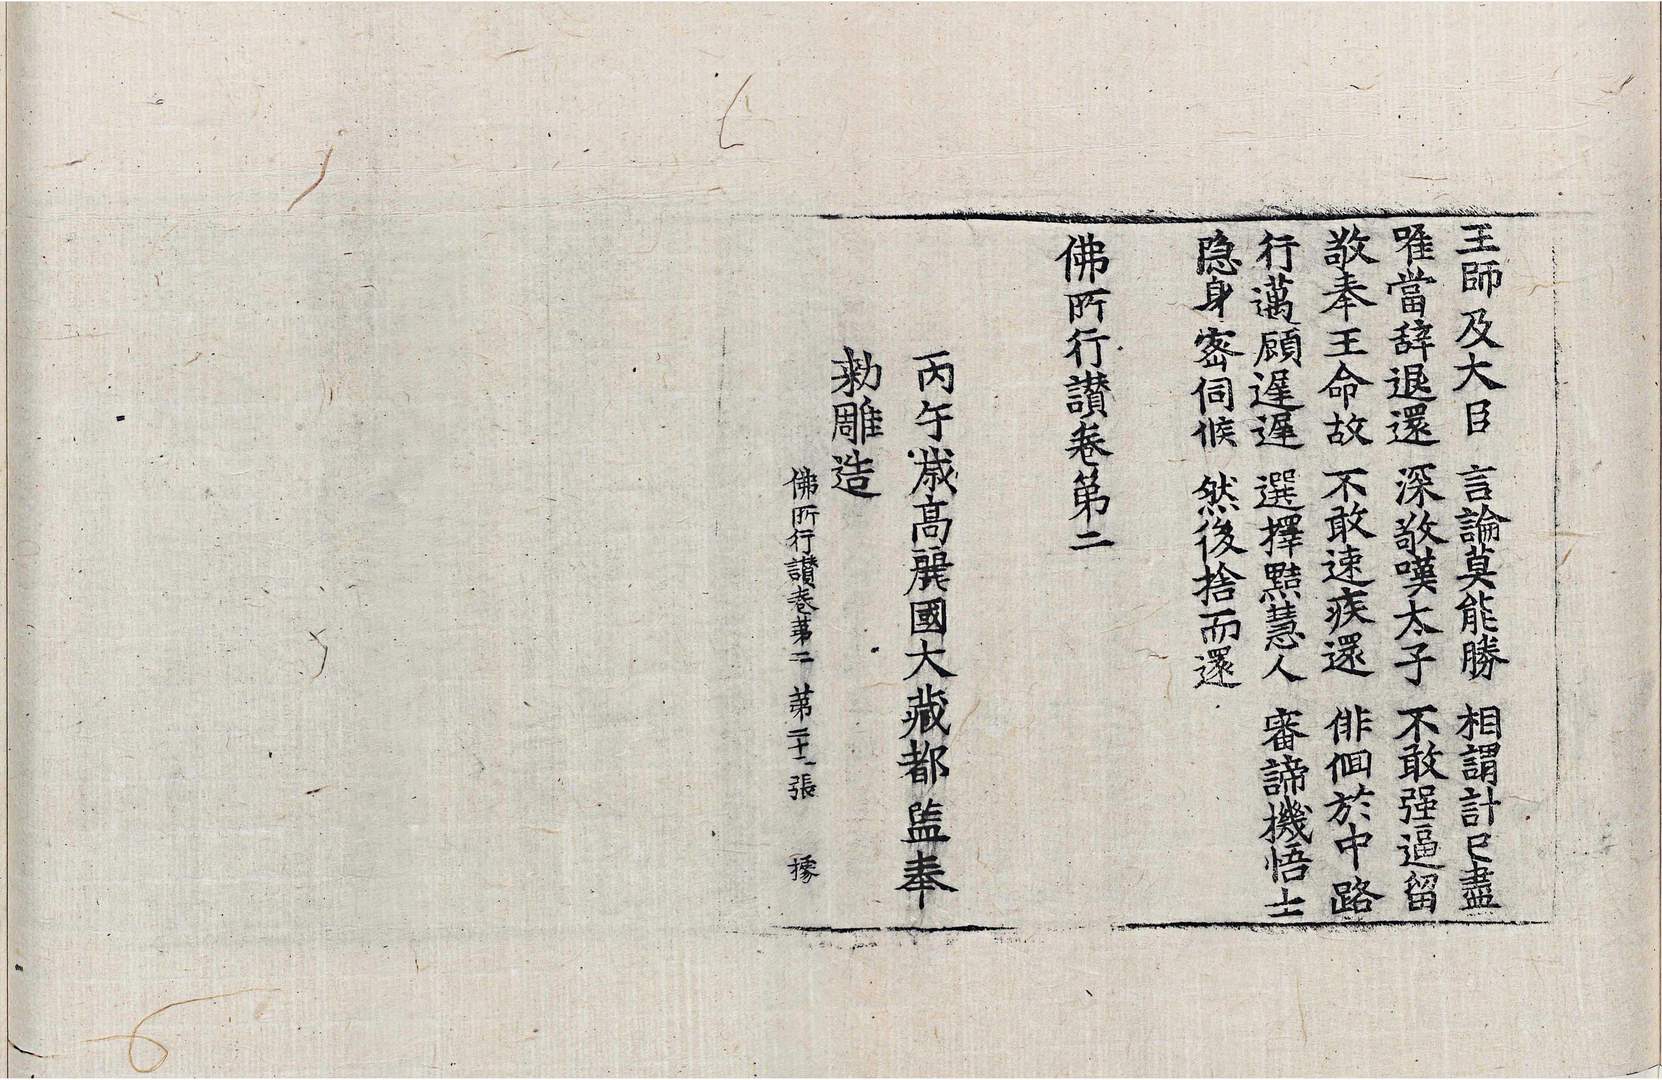 王師及大臣　言論莫能勝　相謂計已盡
唯當辭退還　深敬嘆太子　不敢强逼留
敬奉王命故　不敢速疾還　俳佪於中路
行邁顧遲遲　選擇黠慧人　審諦機悟士
隐身密伺候　然後捨而還
佛所行讃卷第二
丙午歳高麗國大藏都監奉
勑雕造
佛所行讃卷第二　第二十一張　據